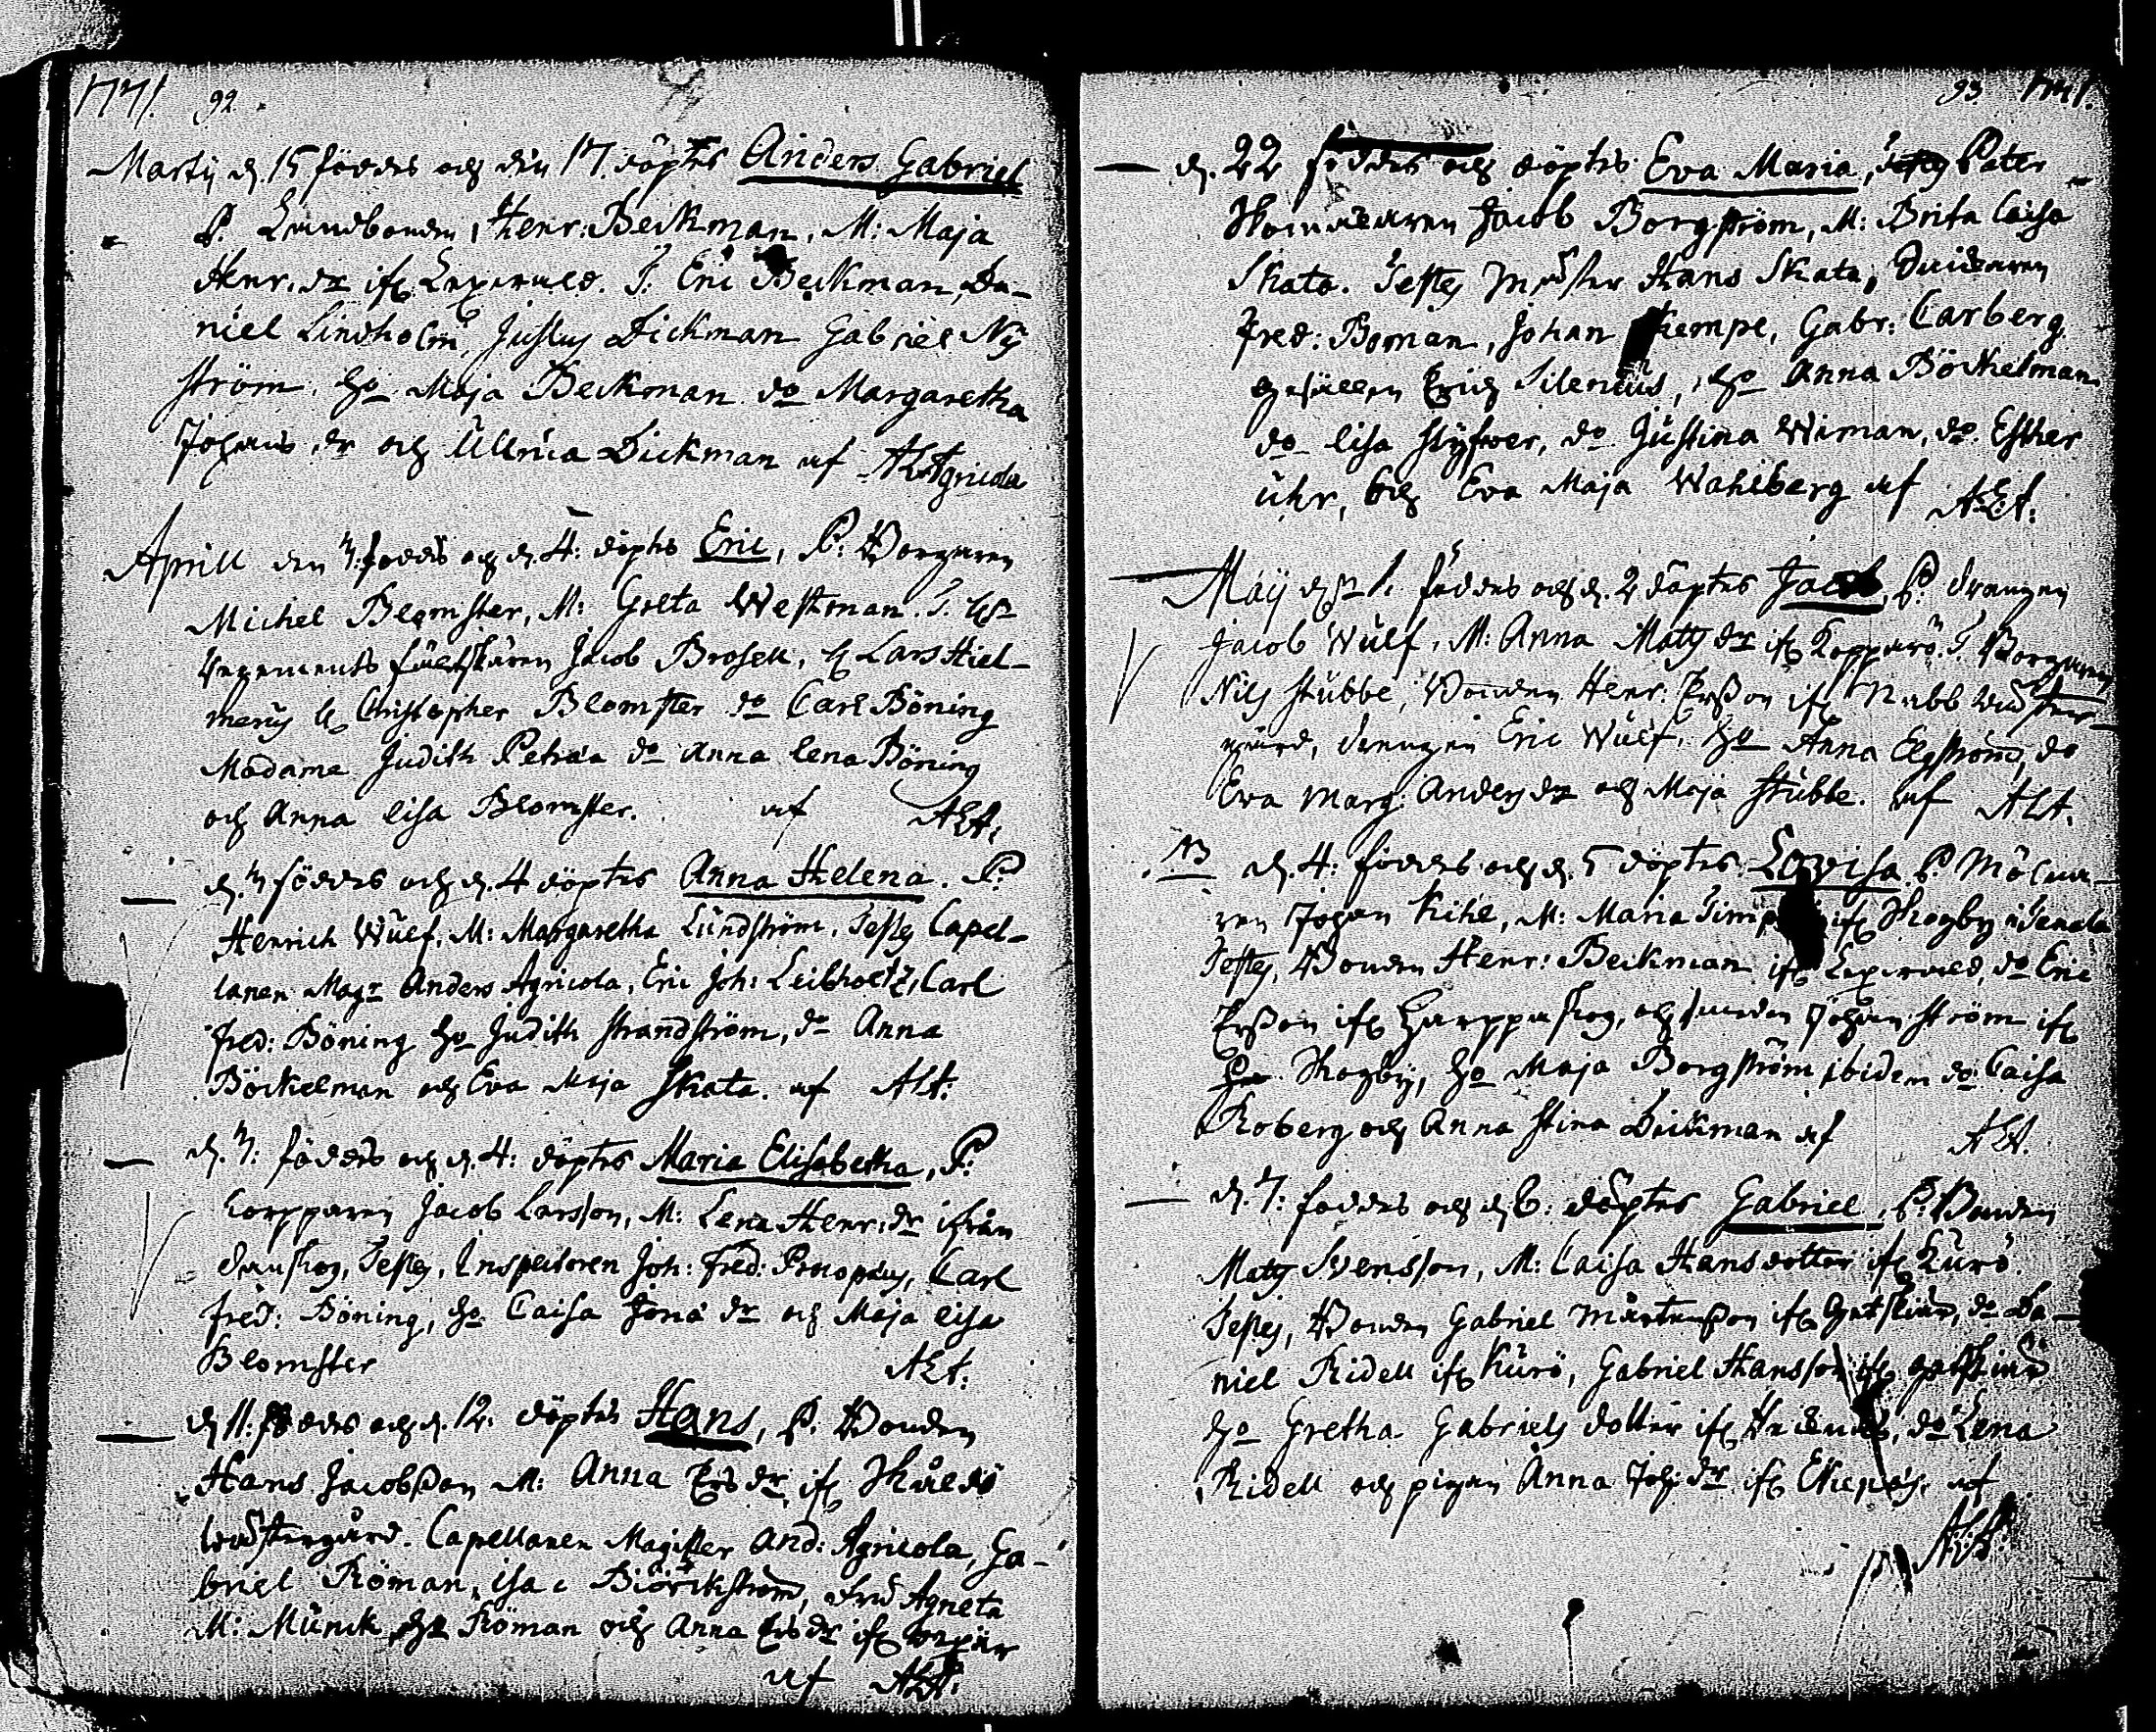 1771. 92.
Martij d. 15 föddes och den 17. döptes Anders Gabriel
P. Landbonden, Henr: Beckman, M: Maja
Henr. dr ifr. T: Eric Beckman, Da-
niel Lindholm, Justus Dickman Gabriel Ny
ström. Hu Maja Beckman do Margaretha
Johans dr och Ullrica Dickman af Agricola
Aprill den 3. föddes och d. 4: döptes Eric, P: Borgaren
Michel Blomster, M: Greta Westman. T.
regements fältskären Jacob Brosell, H Lars Hiel-
merus H Christopher Blomster do Carl Böning
Madame Judith Petræa do Anna Lena Böning
och Anna Lisa Blomster. af ALA.
d. 3 föddes och d. 4 döptes Anna Helena. P.
Henrich Wulf, M: Margaretha Lundström, Testes Capel-
lanen Magr Anders Agricola, Eric Joh: Leibholtz, Carl
Fred: Böning Hu Judith Strandström, do Anna
Böckelman och Eva Maja Skata. af ALA.
d. 3: föddes och d. 4: döptes Maria Elisabetha, P:
Jacob Larsson, M: Lena Henr: dr ifrån
Testes, Inspectoren Joh: Fred: Carl
Fred: Böning, Hu Caisa Jona dr och Maja Lisa
Blomster ALA.
d 11: föddes och d. 12. döptes Hans, P. Bonden
Hans Jacobsson M: Anna Ers dr, ifr
wästergård. Capellanen Magister And: Agricola, Ga-
briel Röman, Isac Björckström, Fru Agneta
M: Munck, Röman och Anna Ers dr ifr
af ALA.
93. 1771.
d. 22 föddes och döptes Eva Maria, Pater
Jacob Borgström, M: Brita Caisa
Skata. Testes Mäster Hans Skata,
Fred: Boman, Johan Kempe, Gabr: Carberg
gesällen Erich Silenius, Hu Anna Böckelman
do Lisa Styfwer, do Justina Wiman, do Esther
Uhr, och Eva Maja Wahlberg af ALA.
Maij d. 1. föddes och d. 2 döptes Jacob, P. drängen
Jacob Wulf, M: Anna Matts dr ifr Kopparö. T. Borgaren
Nils Stubbe, Bonden Henr. Ersson ifr wäster-
gård, drengen Eric Wulf, Hu Anna Elgström, do
Eva Marg: Anders dr och Maja Stubbe. af ALA.
NB d. 4: föddes och d. 5 döptes Lovisa. P. Mölna-
ren Johan Kihl, M: Maria ifr Skogby i Tenala
Testes, Bonden Henr: Beckman ifr do Eric
Ersson ifr Harpparskog, och Johan Ström ifr
Skogby, Hu Maja Borgström ibidem do Caisa
Roberg och Anna Stina Dickman af ALA.
d. 7: föddes och d 8: döptes Gabriel, P. Bonden
Matts Svensson, M: Caisa Hansdotter ifr Kurö.
Testes, Bonden Gabriel Mårtensson ifr do Da-
niel Ridell ifr Kurö, Gabriel Hansson ifr
Hu Gretha Gabriels dotter ifr do Lena
Ridell och pigan Anna Joh: dr ifr Ekenäs. af
ALA.